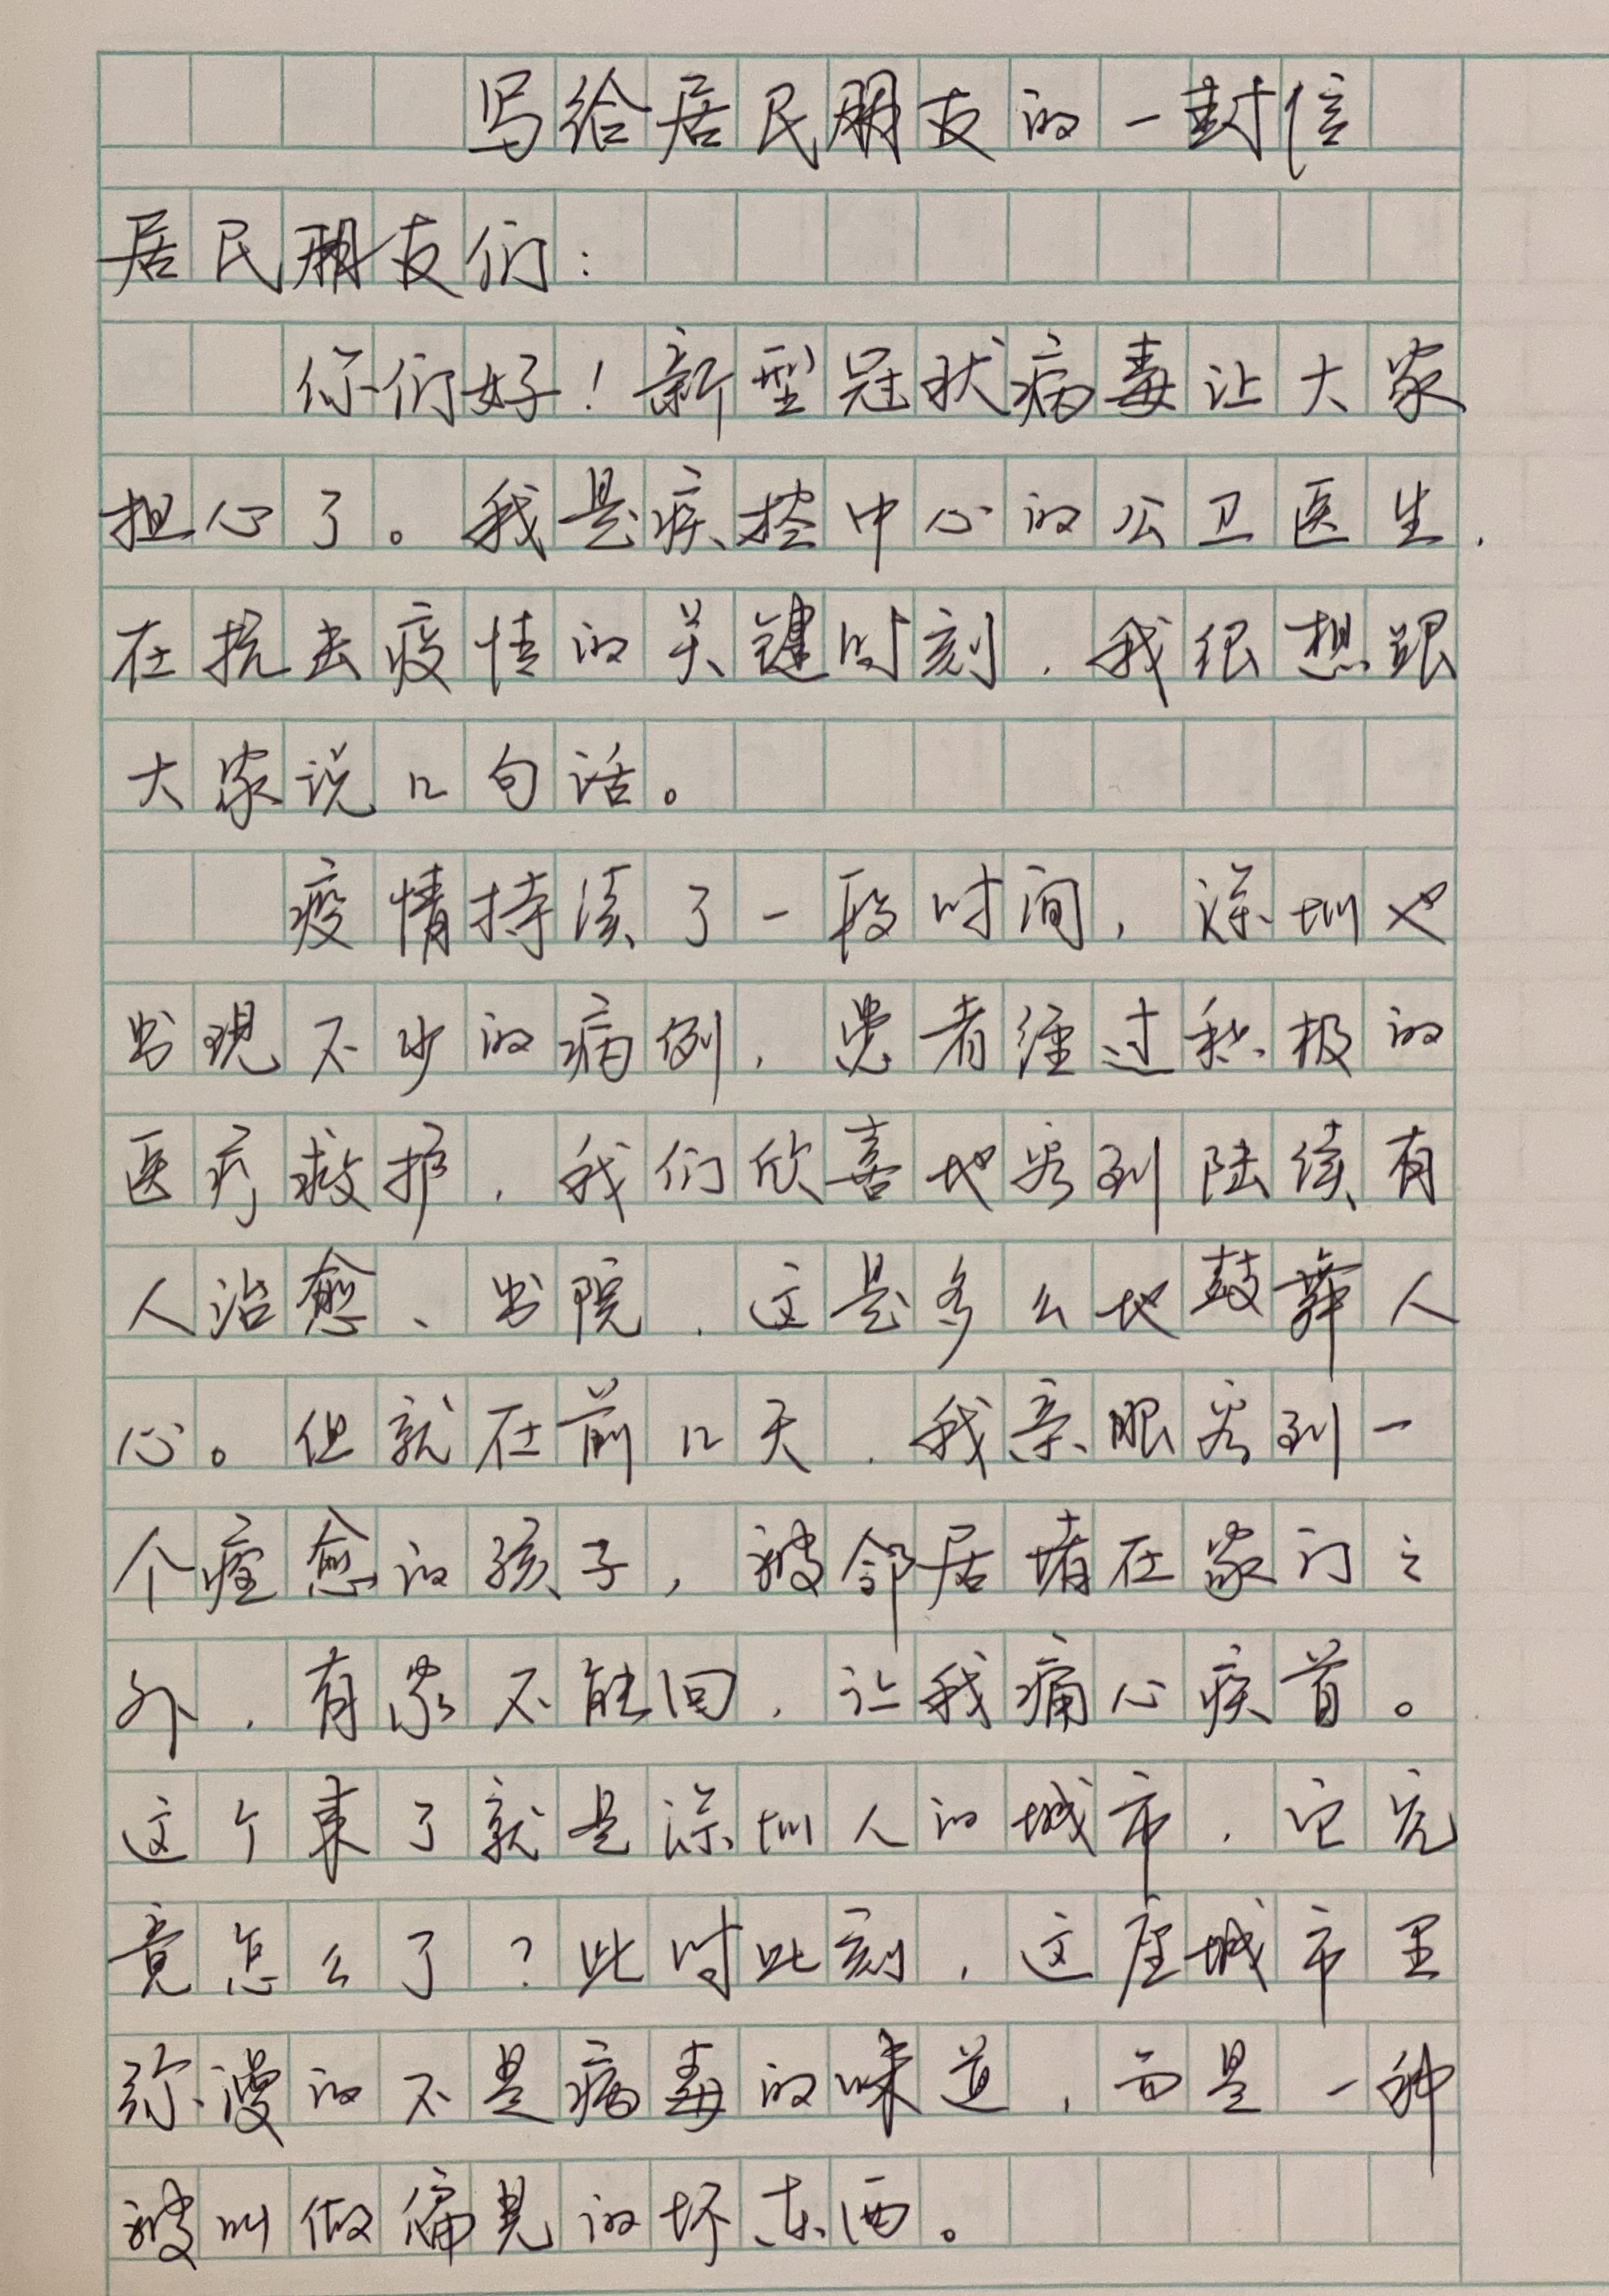 写给居民朋友的一封信
居民朋友们：
你们好！新型冠状病毒让大家
担心了。我是疾控中心的公卫医生，
在抗击疫情的关键时刻，我很想跟
大家说几句话。
疫情持续了一段时间，深圳也
出现不少的病例，患者经过积极的
医疗救护，我们欣喜地看到陆续有
人治愈、出院，这是多么地鼓舞人
心。但就在前几天，我亲眼看到一
个痊愈的孩子，被邻居堵在家门之
外，有家不能回，让我痛心疾首。
这个来了就是深圳人的城市，它究
竟怎么了？此时此刻，这座城市里
弥漫的不是病毒的味道，而是一种
被叫做偏见的坏东西。